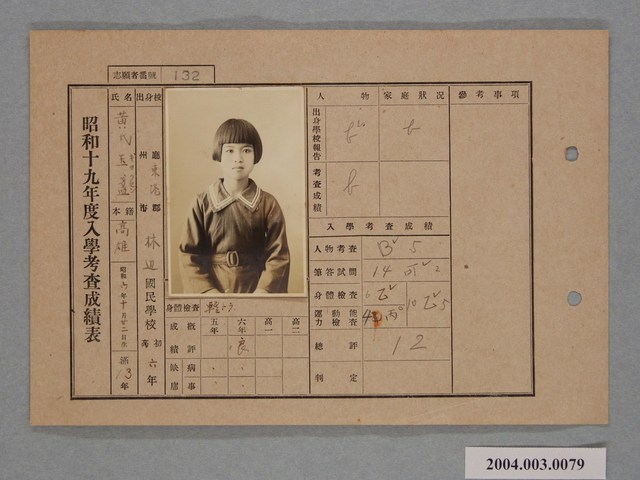 昭和十九年度入學考查成績表
志願者番號 132
氏名 黃氏玉蓋
本籍 高雄
昭和六年十月廿二日生
滿13年
出身校
州廳 東港 郡市
林邊 國民學校
初高 六年
身體檢查 軽トラ
成績概評 五年 六年 高一 高二
良
缺席 病事
人物 家庭狀況 參考事項
出身學校報告 b b
考查成績 b
入學考查成績
人物考查 B 5
筆答試問 14 可 2
身體檢查 乙 10 乙 5
運動能力檢查 丙
總評 12
判定
2004.003.0079